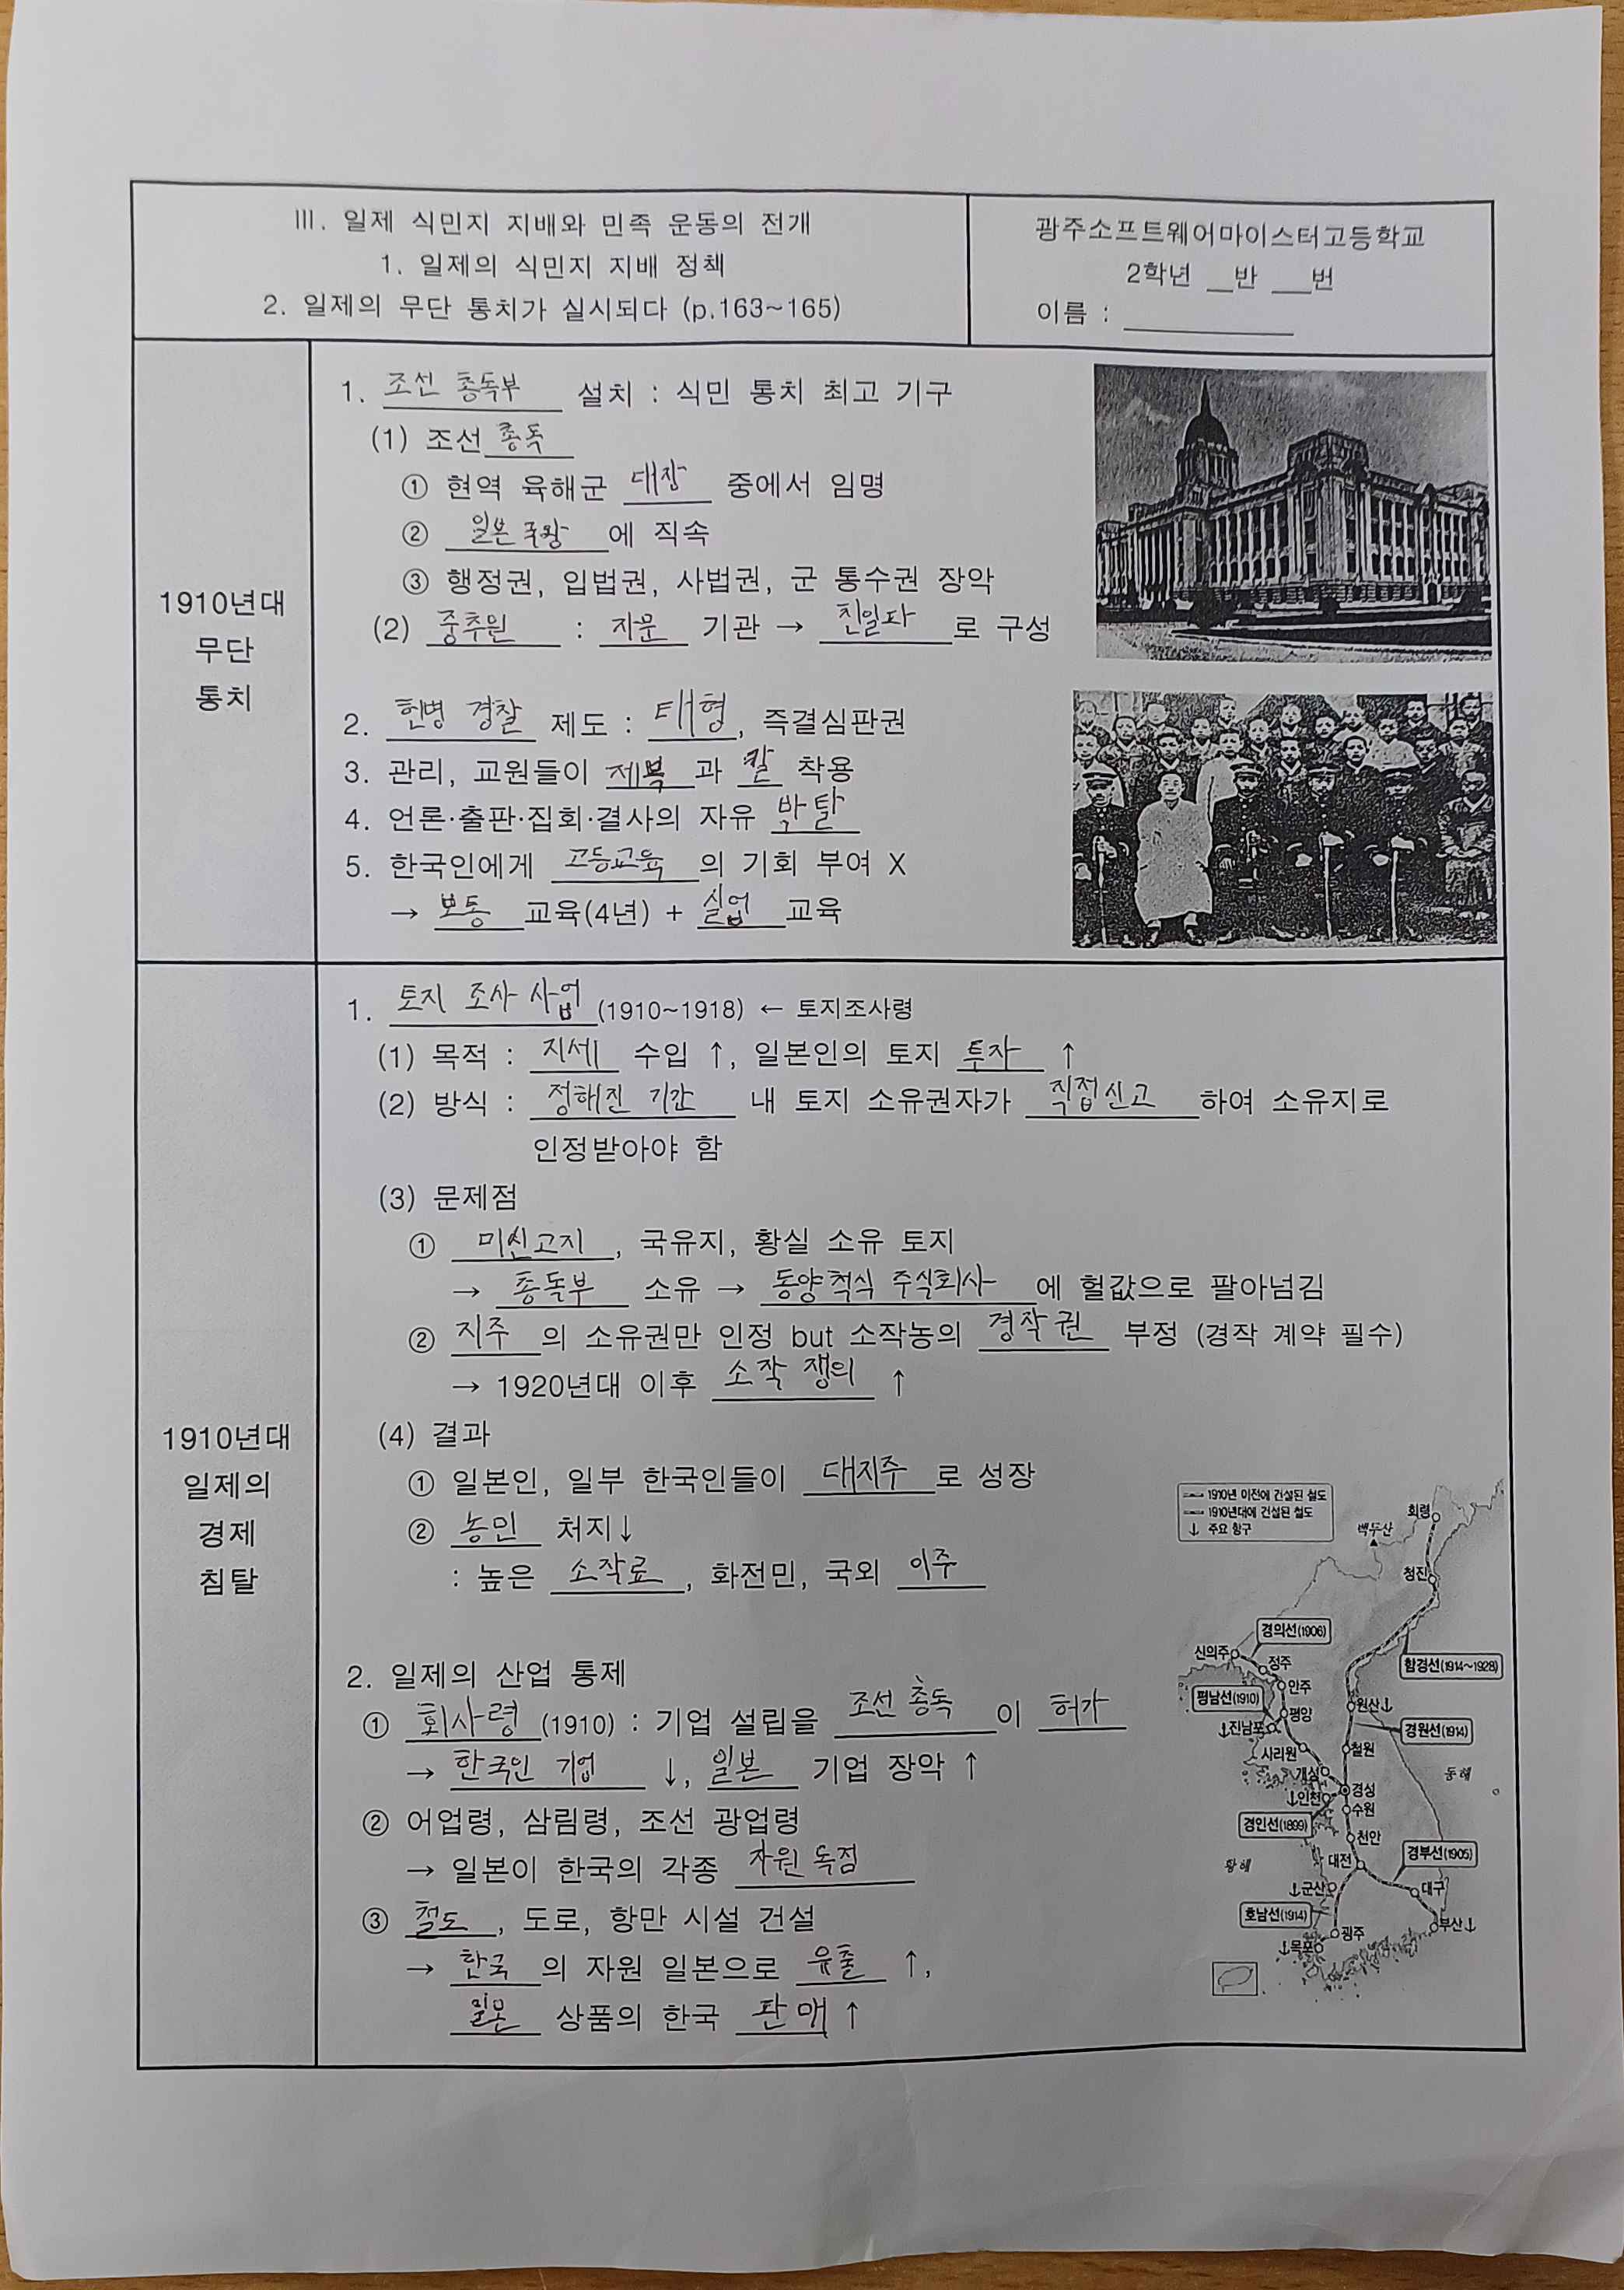 III. 일제 식민지 지배와 민족 운동의 전개
1. 일제의 식민지 지배 정책
2. 일제의 무단 통치가 실시되다 (p.163~165)
광주소프트웨어마이스터고등학교
2학년 __반 ___번
이름 : ____________
1910년대
무단
통치
1. 조선 총독부 설치 : 식민 통치 최고 기구
(1) 조선 총독
① 현역 육해군 대장 중에서 임명
② 일본 국왕에 직속
③ 행정권, 입법권, 사법권, 군 통수권 장악
(2) 중추원 : 자문 기관 → 친일파로 구성
2. 헌병 경찰 제도 : 태형, 즉결심판권
3. 관리, 교원들이 제복과 칼 착용
4. 언론·출판·집회·결사의 자유 박탈
5. 한국인에게 고등교육의 기회 부여 X
→ 보통 교육(4년) + 실업 교육
1910년대
일제의
경제
침탈
1. 토지 조사 사업(1910~1918) ← 토지조사령
(1) 목적 : 지세 수입 ↑, 일본인의 토지 투자 ↑
(2) 방식 : 정해진 기간 내 토지 소유권자가 직접신고하여 소유지로
인정받아야 함
(3) 문제점
① 미신고지, 국유지, 황실 소유 토지
→ 총독부 소유 → 동양척식 주식회사에 헐값으로 팔아넘김
② 지주의 소유권만 인정 but 소작농의 경작권 부정 (경작 계약 필수)
→ 1920년대 이후 소작 쟁의 ↑
(4) 결과
① 일본인, 일부 한국인들이 대지주로 성장
② 농민 처지↓
: 높은 소작료, 화전민, 국외 이주
2. 일제의 산업 통제
① 회사령(1910) : 기업 설립을 조선 총독이 허가
→ 한국인 기업 ↓, 일본 기업 장악 ↑
② 어업령, 삼림령, 조선 광업령
→ 일본이 한국의 각종 자원 독점
③ 철도, 도로, 항만 시설 건설
→ 한국의 자원 일본으로 유출 ↑,
일본 상품의 한국 판매 ↑
1910년 이전에 건설된 철도
1910년대에 건설된 철도
주요 항구
회령
백두산
청진
경의선(1906)
신의주
정주
함경선(1914~1928)
안주
평남선(1910)
평양
원산
진남포
경원선(1914)
사리원
철원
개성
동해
인천
경성
수원
경인선(1899)
천안
경부선(1905)
황해
대전
군산
대구
호남선(1914)
광주
부산
목포